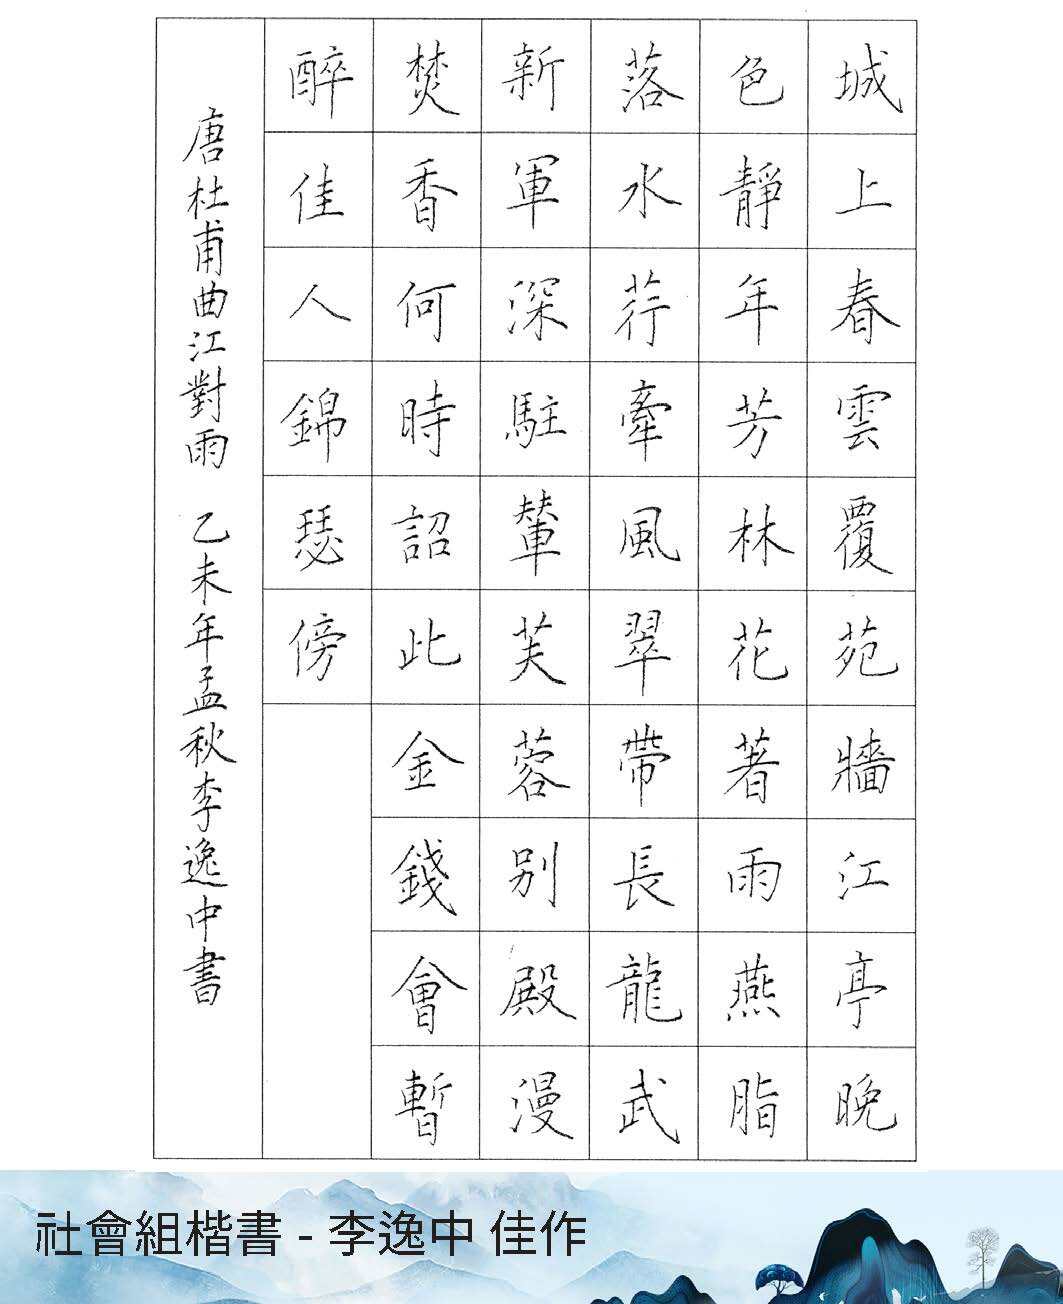 城上春雲覆苑牆江亭晚
色靜年芳林花著雨燕脂
落水荇牽風翠帶長龍武
新軍深駐輦芙蓉別殿漫
焚香何時詔此金錢會暫
醉佳人錦瑟傍
唐杜甫曲江對雨 乙未年孟秋李逸中書
社會組楷書 - 李逸中 佳作